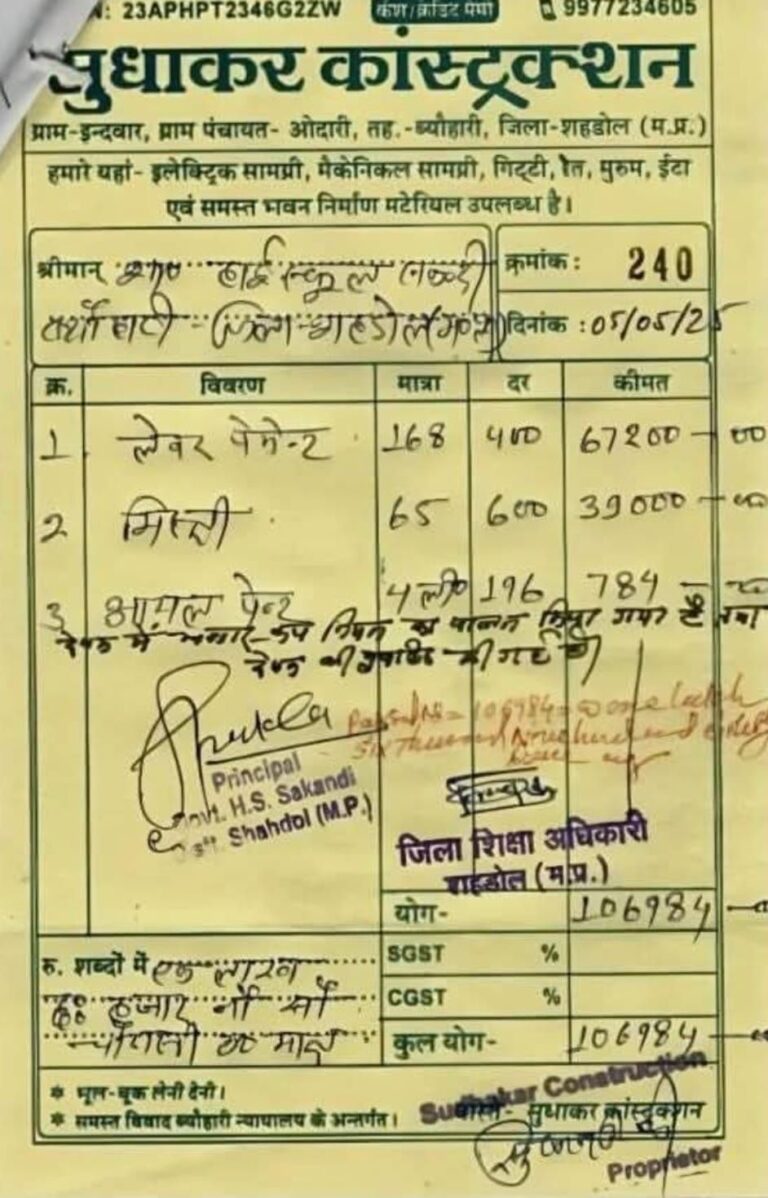 N: 23APHPT2346G2ZW कैश/क्रेडिट मेमो 9977234605
सुधाकर कांस्ट्रक्शन
ग्राम-इन्दवार, ग्राम पंचायत- ओदारी, तह.-ब्यौहारी, जिला-शहडोल (म.प्र.)
हमारे यहां- इलेक्ट्रिक सामग्री, मैकेनिकल सामग्री, गिट्टी, रेत, मुरुम, ईटा
एवं समस्त भवन निर्माण मटेरियल उपलब्ध है।
श्रीमान् हाई स्कूल
क्रमांक: 240
जिला-शहडोल
दिनांक : 05/05/25
क्र. विवरण मात्रा दर कीमत
1 लेवर पेमेन्ट 168 400 67200-00
2 मिस्त्री 65 600 39000-00
3 आयल पेन्ट 4 ली० 196 784
का पालन किया गया है तथा
की गई थी
106984 one lakh
Six thousand Nine hundred
Principal
Govt. H.S. Sakandi
Distt. Shahdol (M.P.)
जिला शिक्षा अधिकारी
शहडोल (म.प्र.)
योग- 106984
रु. शब्दों में एक लाख
छः हजार नौ सौ
चौरासी रु० मात्र
SGST %
CGST %
कुल योग- 106984
* भूल-चूक लेनी देनी।
* समस्त विवाद ब्यौहारी न्यायालय के अन्तर्गत।
Sudhakar Construction
वास्ते- सुधाकर कांस्ट्रक्शन
Proprietor